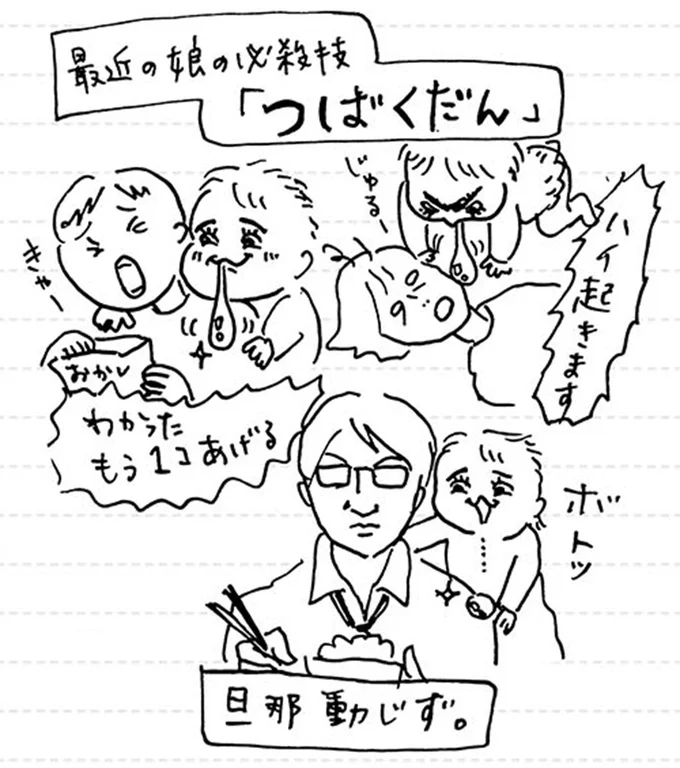 最近の娘の必殺技
「つばくだん」
きゃー
おかし
わかった
もう1コあげる
じゅるー
ハイ起きます
ボトッ
旦那動じず。